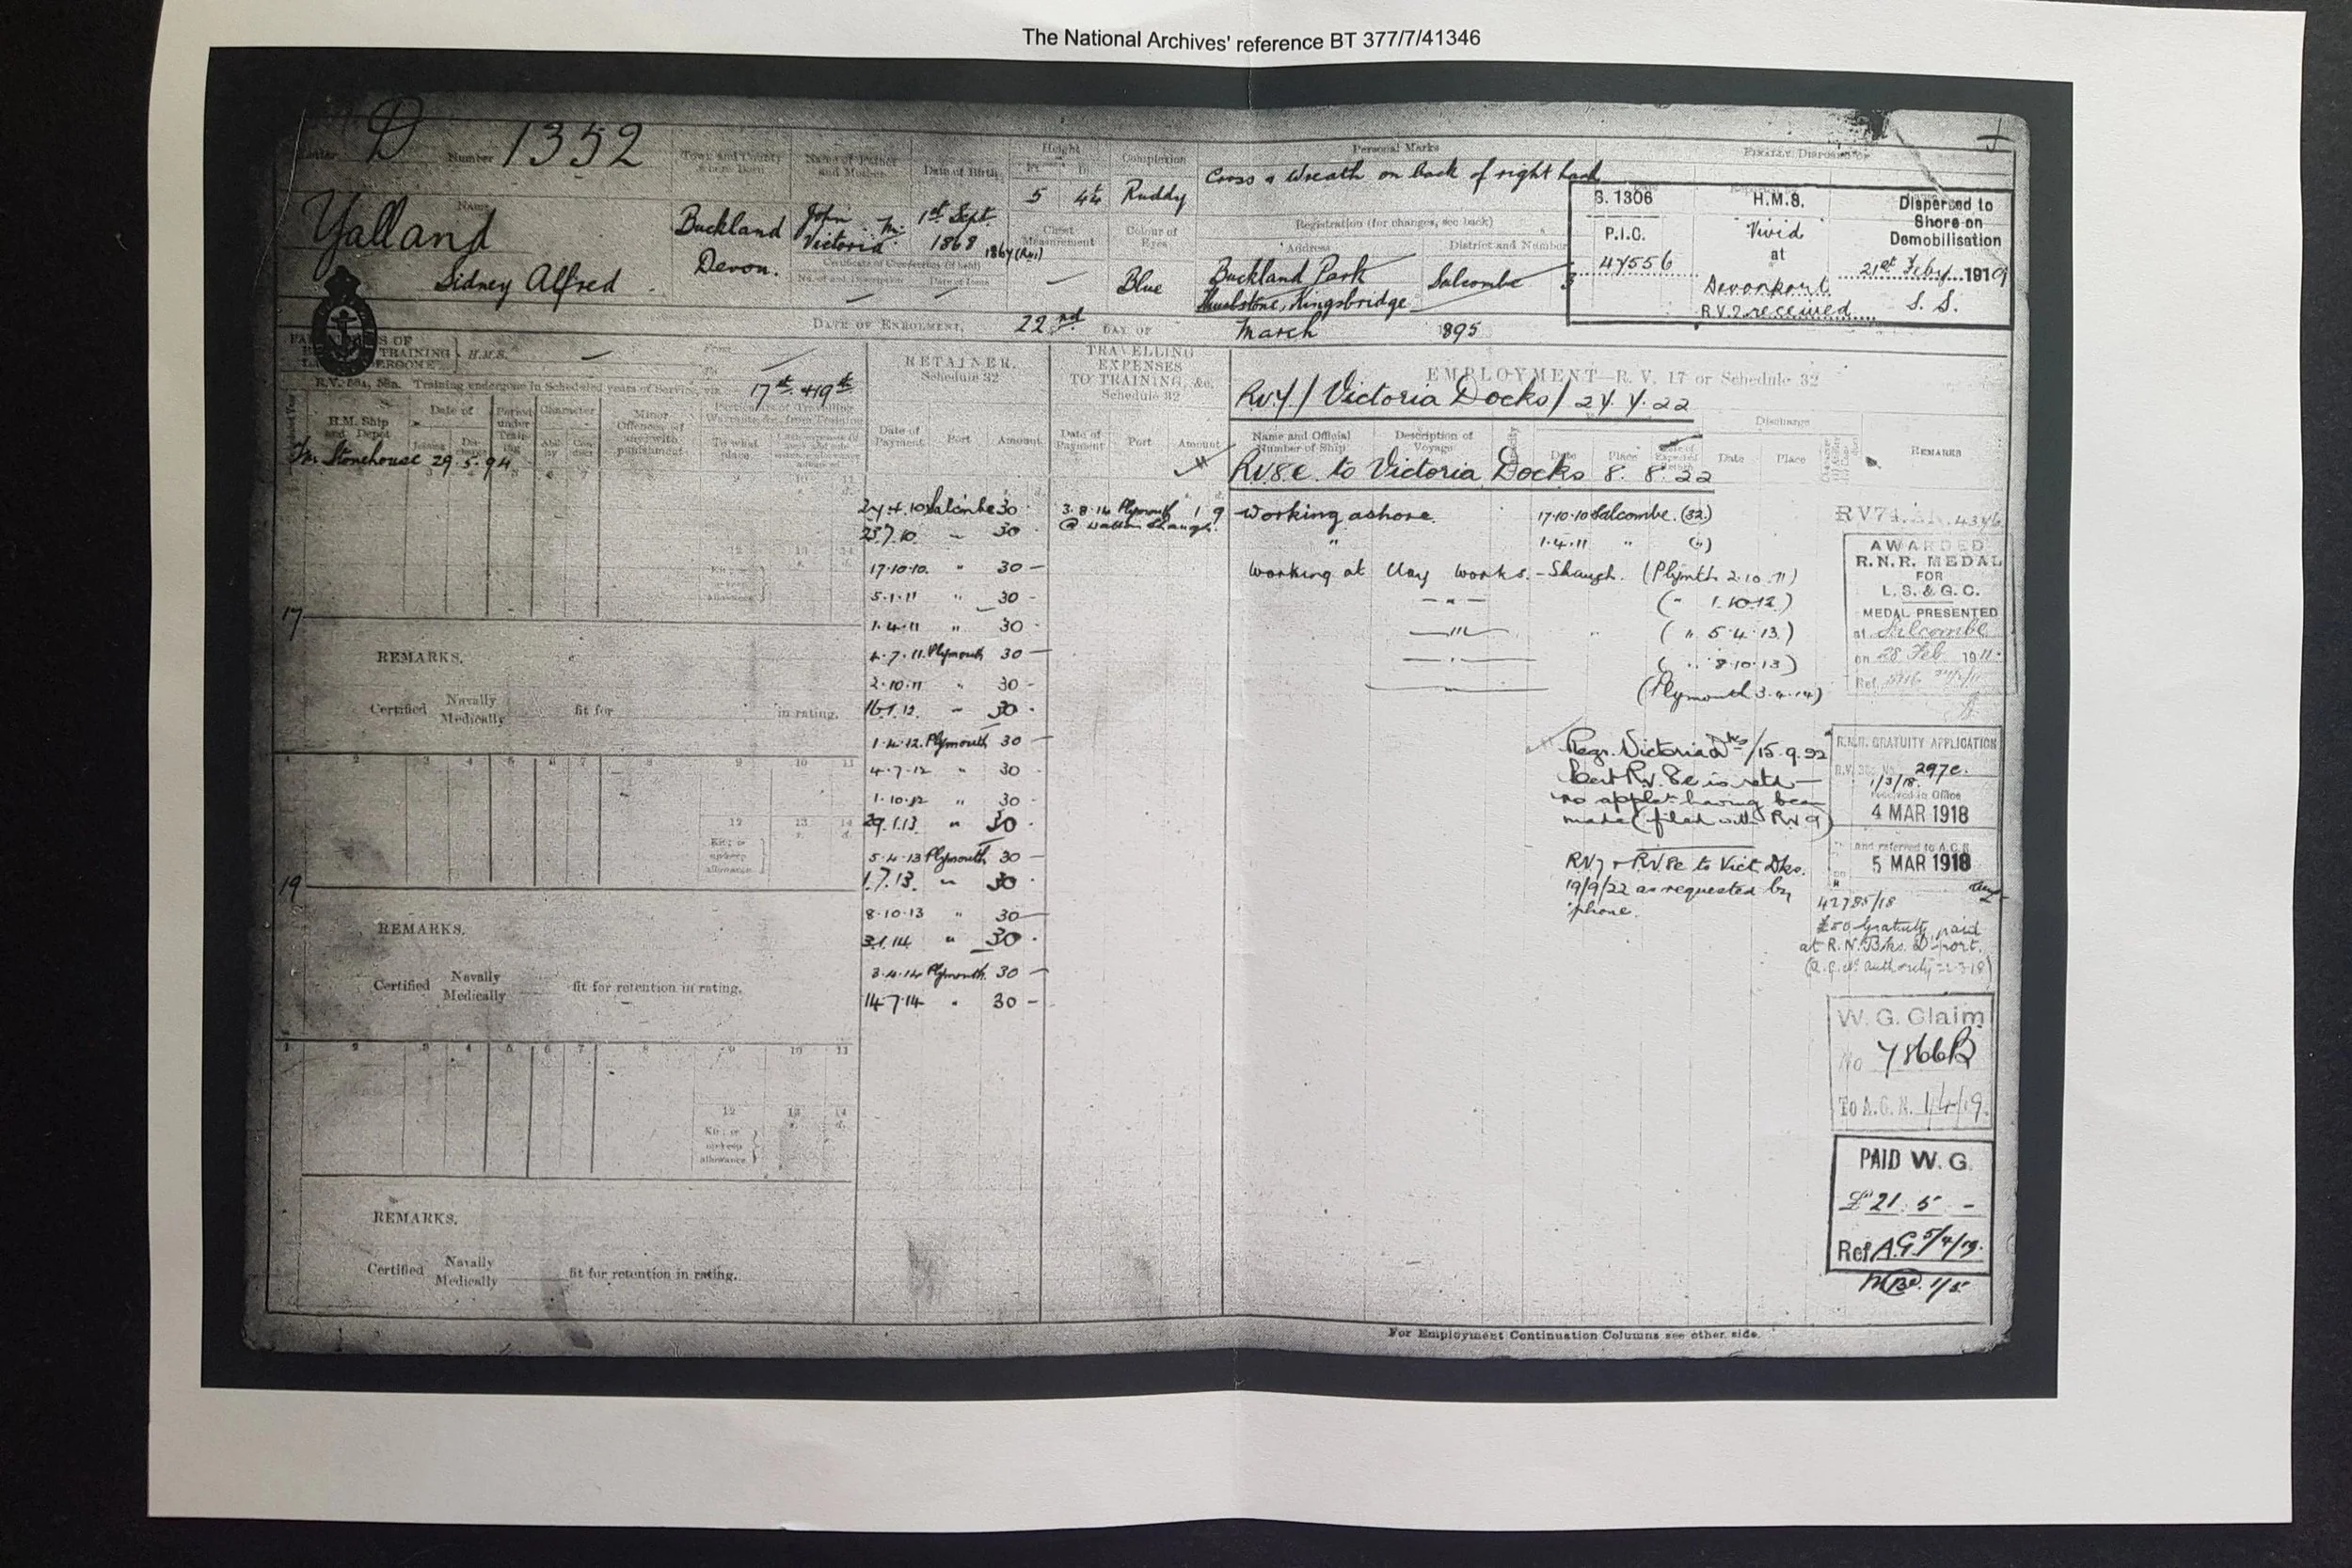 The National Archives' reference BT 377/7/41346
D Number 1352
Name
Yalland
Sidney Alfred
Town and County where Born
Buckland
Devon.
Name of Father and Mother
John
Victoria
Date of Birth
1st Sept.
1868
Height
Ft. In.
5 4½
Chest Measurement
Complexion
Ruddy
Colour of Eyes
Blue
Personal Marks
Cross & Wreath on back of right hand
Registration (for changes, see back)
Address
District and Number
Buckland Park
Thurlstone, Kingsbridge
Salcombe
FINALLY DISPOSED OF
S. 1306
P.I.C.
47556
H.M.S.
Vivid
at
Devonport
R.V.2 received
Dispersed to
Shore on
Demobilisation
21st Feby. 1919
S. S.
DATE OF ENROLMENT, 22nd DAY OF March 1895
TRAINING
H.M.S.
From
To
R.V. 58A. Training undergone in Scheduled years of Service, viz. 17th & 19th
H.M. Ship and Depot
Date of
Joining
Period under Training
Character
Minor Offences of
any, with punishment
To what place.
Stonehouse 29.5.94
17
REMARKS.
Certified Navally
Medically fit for in rating.
19
REMARKS.
Certified Navally
Medically fit for retention in rating.
1 2 3 4 5 6 7 8 9 10 11
12 13 14
Kit; or upkeep allowance
REMARKS.
Certified Navally
Medically fit for retention in rating.
RETAINER.
Schedule 32
Date of Payment Port Amount
Salcombe 30
23.7.10 " 30
17.10.10. " 30 -
5.1.11 " 30 -
1.4.11 " 30 -
4.7.11. Plymouth 30 -
2.10.11 " 30 -
16.1.12. " 30 -
1.4.12. Plymouth 30 -
4.7.12 " 30
1.10.12 " 30
29.1.13. " 30 -
5.4.13 Plymouth 30 -
1.7.13. " 30 -
8.10.13 " 30 -
3.1.14 " 30 -
3.4.14 Plymouth. 30 -
14.7.14 " 30 -
TRAVELLING
EXPENSES
TO TRAINING, &c.
Schedule 32
Date of Payment Port Amount
3.8.14 Plymouth 1 9
EMPLOYMENT—R. V. 17 or Schedule 32
RV7/ Victoria Docks/ 27.7.22
Name and Official Number of Ship
Description of Voyage
Date
Place
Date of Expected Return
Discharge
Date Place
REMARKS
RV8e to Victoria Docks 8.8.22
Working ashore. 17.10.10 Salcombe. (32)
" 1.4.11 " (")
Working at Clay Works. - Shaugh. (Plymth 2.10.11)
(" 1.10.12)
" (" 5.4.13)
(" 8.10.13)
(Plymouth 3.4.14)
Regr. Victoria Dks/15.9.22
Cert RV. 8e is retd —
no appln having been
made (filed with RV9)
RV7 & RV8e to Vict. Dks.
19/9/22 as requested by
'phone.
AWARDED
R.N.R. MEDAL
FOR
L. S. & G. C.
MEDAL PRESENTED
at Salcombe
on 28 Feb 1911.
Ref.
R.N.R. GRATUITY APPLICATION
297e.
1/3/18.
received in Office
4 MAR 1918
and referred to A.C.R.
5 MAR 1918
42785/18
£50 Gratuity paid
at R.N. Bks. D'port.
W. G. Claim
No 7866B
To A.G.N. 1/4/19.
PAID W. G.
£21. 5 -
Ref A.G. 5/4/19.
For Employment Continuation Columns see other side.